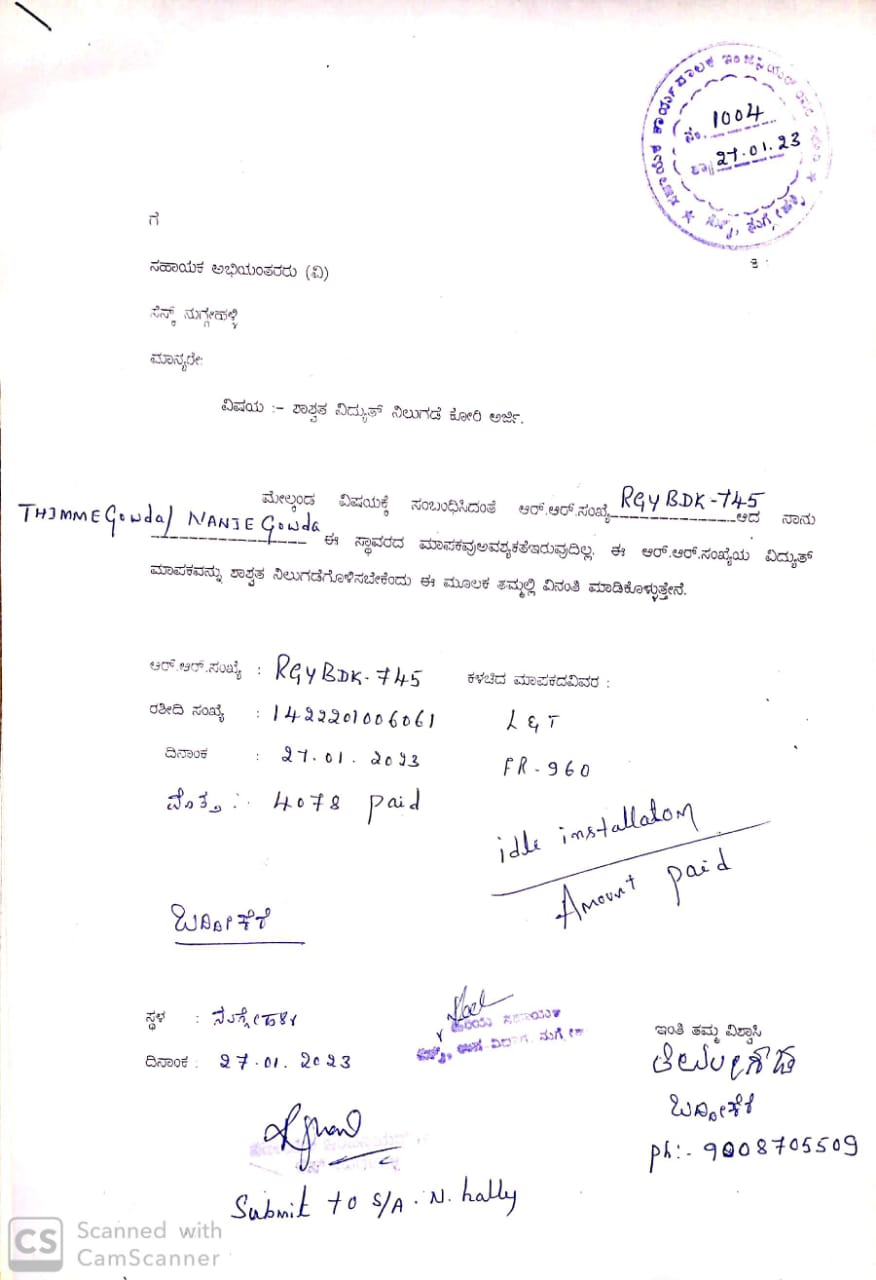 ಸಹಾಯಕ ಕಾರ್ಯಪಾಲಕ ಇಂಜಿನಿಯರ್
ನಂ. 1004
ದಿ|| 27.01.23
ಗೆ
ಸಹಾಯಕ ಅಭಿಯಂತರರು (ವಿ)
ಸೆಸ್ಕ್ ನುಗ್ಗೇಹಳ್ಳಿ
ಮಾನ್ಯರೇ
ವಿಷಯ :- ಶಾಶ್ವತ ವಿದ್ಯುತ್ ನಿಲುಗಡೆ ಕೋರಿ ಅರ್ಜಿ.
ಮೇಲ್ಕಂಡ ವಿಷಯಕ್ಕೆ ಸಂಬಂಧಿಸಿದಂತೆ ಆರ್.ಆರ್.ಸಂಖ್ಯೆ RGYBDK-745 ಆದ ನಾನು
THIMMEGowda/ NANJEGowda ಈ ಸ್ಥಾವರದ ಮಾಪಕವುಅವಶ್ಯಕತೆಇರುವುದಿಲ್ಲ. ಈ ಆರ್.ಆರ್.ಸಂಖ್ಯೆಯ ವಿದ್ಯುತ್
ಮಾಪಕವನ್ನು ಶಾಶ್ವತ ನಿಲುಗಡೆಗೊಳಿಸಬೇಕೆಂದು ಈ ಮೂಲಕ ತಮ್ಮಲ್ಲಿ ವಿನಂತಿ ಮಾಡಿಕೊಳ್ಳುತ್ತೇನೆ.
ಆರ್.ಆರ್.ಸಂಖ್ಯೆ : RGYBDK-745 ಕಳಚಿದ ಮಾಪಕದವಿವರ :
ರಶೀದಿ ಸಂಖ್ಯೆ : 1422201006061 L & T
ದಿನಾಂಕ : 27.01.2023 FR-960
ಮೊತ್ತ : 4078 paid
idle installation
Amount paid
ಸ್ಥಳ : ನುಗ್ಗೇಹಳ್ಳಿ
ಹಿರಿಯ ಸಹಾಯಕ
ಇಂತಿ ತಮ್ಮ ವಿಶ್ವಾಸಿ
ದಿನಾಂಕ : 27.01.2023
ph:- 9008705509
Submit to S/A. N. hally
CS Scanned with
CamScanner